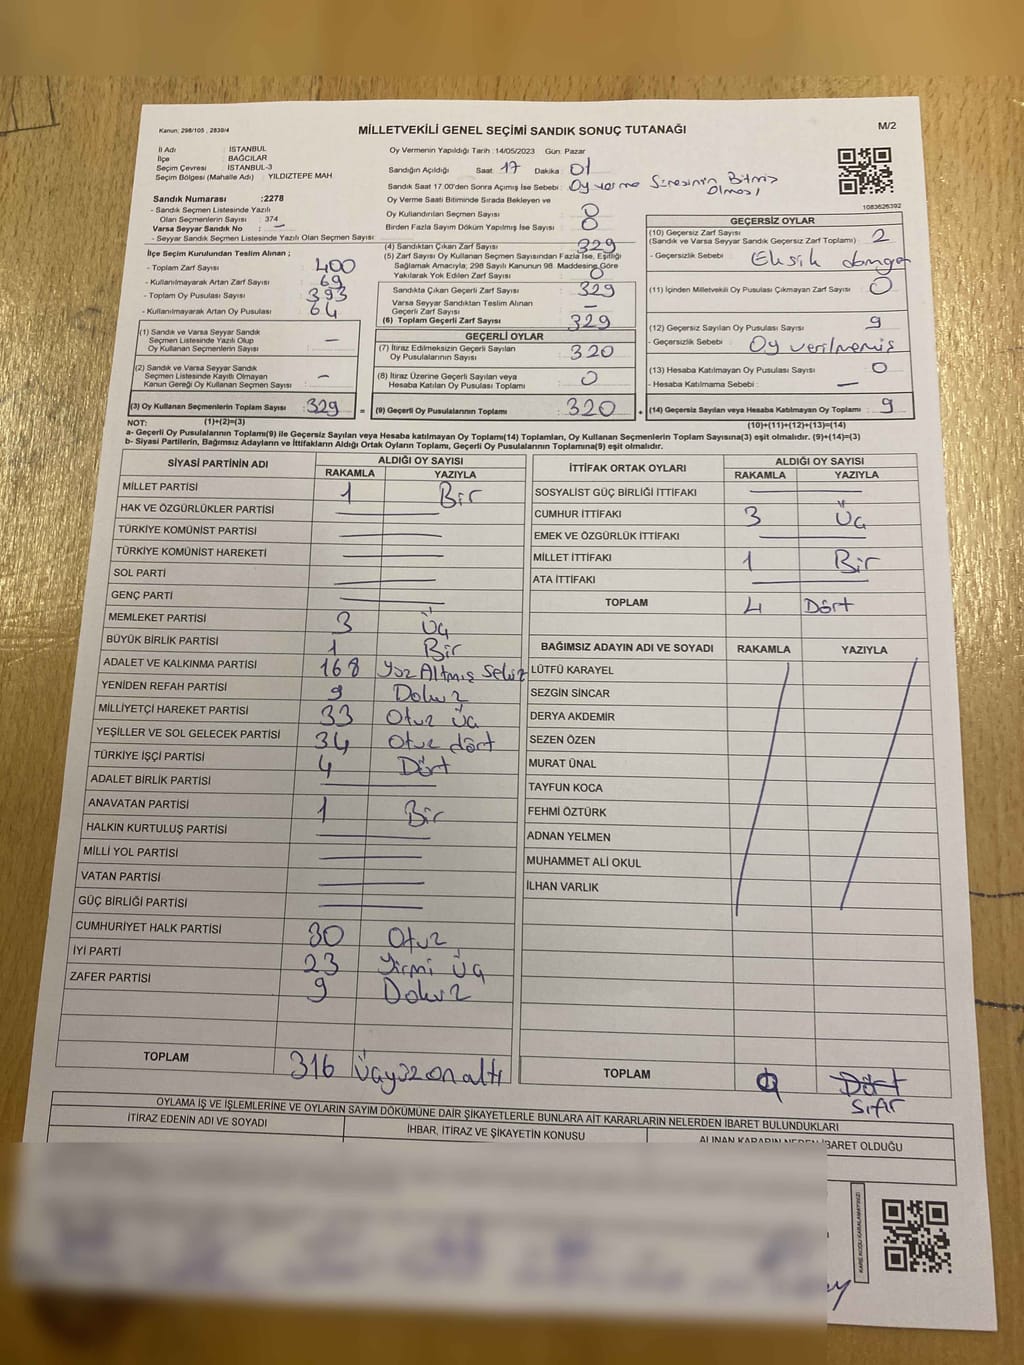 Kanun: 298/105 , 2839/4
MİLLETVEKİLİ GENEL SEÇİMİ SANDIK SONUÇ TUTANAĞI
M/2
İl Adı : İSTANBUL
İlçe : BAĞCILAR
Seçim Çevresi : İSTANBUL-3
Seçim Bölgesi (Mahalle Adı) : YILDIZTEPE MAH
Sandık Numarası :2278
- Sandık Seçmen Listesinde Yazılı
Olan Seçmenlerin Sayısı : 374
Varsa Seyyar Sandık No : –
- Seyyar Sandık Seçmen Listesinde Yazılı Olan Seçmen Sayısı :
İlçe Seçim Kurulundan Teslim Alınan ;
- Toplam Zarf Sayısı : 400
- Kullanılmayarak Artan Zarf Sayısı : 69
- Toplam Oy Pusulası Sayısı : 393
- Kullanılmayarak Artan Oy Pusulası : 64
(1) Sandık ve Varsa Seyyar Sandık
Seçmen Listesinde Yazılı Olup
Oy Kullanan Seçmenlerin Sayısı : –
(2) Sandık ve Varsa Seyyar Sandık
Seçmen Listesinde Kayıtlı Olmayan
Kanun Gereği Oy Kullanan Seçmen Sayısı : –
(3) Oy Kullanan Seçmenlerin Toplam Sayısı : 329 =
(1)+(2)=(3)
Oy Vermenin Yapıldığı Tarih : 14/05/2023 Gün: Pazar
Sandığın Açıldığı Saat : 17 Dakika : 01
Sandık Saat 17.00'den Sonra Açılmış İse Sebebi : Oy verme Süresinin Bitmiş
Olması
Oy Verme Saati Bitiminde Sırada Bekleyen ve
Oy Kullandırılan Seçmen Sayısı : 0
Birden Fazla Sayım Döküm Yapılmış İse Sayısı : 0
(4) Sandıktan Çıkan Zarf Sayısı : 329
(5) Zarf Sayısı Oy Kullanan Seçmen Sayısından Fazla İse, Eşitliği
Sağlamak Amacıyla; 298 Sayılı Kanunun 98. Maddesine Göre
Yakılarak Yok Edilen Zarf Sayısı : 0
Sandıkta Çıkan Geçerli Zarf Sayısı : 329
Varsa Seyyar Sandıktan Teslim Alınan
Geçerli Zarf Sayısı : –
(6) Toplam Geçerli Zarf Sayısı : 329
GEÇERLİ OYLAR
(7) İtiraz Edilmeksizin Geçerli Sayılan
Oy Pusulalarının Sayısı : 320
(8) İtiraz Üzerine Geçerli Sayılan veya
Hesaba Katılan Oy Pusulası Toplamı : 0
(9) Geçerli Oy Pusulalarının Toplamı : 320 +
1083626392
GEÇERSİZ OYLAR
(10) Geçersiz Zarf Sayısı
(Sandık ve Varsa Seyyar Sandık Geçersiz Zarf Toplamı) : 2
- Geçersizlik Sebebi : Eksik damga
(11) İçinden Milletvekili Oy Pusulası Çıkmayan Zarf Sayısı : 0
(12) Geçersiz Sayılan Oy Pusulası Sayısı : 9
- Geçersizlik Sebebi : Oy verilmemiş
(13) Hesaba Katılmayan Oy Pusulası Sayısı : 0
- Hesaba Katılmama Sebebi : –
(14) Geçersiz Sayılan veya Hesaba Katılmayan Oy Toplamı : 9
(10)+(11)+(12)+(13)=(14)
NOT:
a- Geçerli Oy Pusulalarının Toplamı(9) ile Geçersiz Sayılan veya Hesaba katılmayan Oy Toplamı(14) Toplamları, Oy Kullanan Seçmenlerin Toplam Sayısına(3) eşit olmalıdır. (9)+(14)=(3)
b- Siyasi Partilerin, Bağımsız Adayların ve İttifakların Aldığı Ortak Oyların Toplamı, Geçerli Oy Pusulalarının Toplamına(9) eşit olmalıdır.
SİYASİ PARTİNİN ADI ALDIĞI OY SAYISI
RAKAMLA YAZIYLA
MİLLET PARTİSİ 1 Bir
HAK VE ÖZGÜRLÜKLER PARTİSİ
TÜRKİYE KOMÜNİST PARTİSİ
TÜRKİYE KOMÜNİST HAREKETİ
SOL PARTİ
GENÇ PARTİ
MEMLEKET PARTİSİ 3 Üç
BÜYÜK BİRLİK PARTİSİ 1 Bir
ADALET VE KALKINMA PARTİSİ 168 Yüz Altmış Sekiz
YENİDEN REFAH PARTİSİ 9 Dokuz
MİLLİYETÇİ HAREKET PARTİSİ 33 Otuz üç
YEŞİLLER VE SOL GELECEK PARTİSİ 34 Otuz dört
TÜRKİYE İŞÇİ PARTİSİ 4 Dört
ADALET BİRLİK PARTİSİ
ANAVATAN PARTİSİ 1 Bir
HALKIN KURTULUŞ PARTİSİ
MİLLİ YOL PARTİSİ
VATAN PARTİSİ
GÜÇ BİRLİĞİ PARTİSİ
CUMHURİYET HALK PARTİSİ 30 Otuz
İYİ PARTİ 23 Yirmi üç
ZAFER PARTİSİ 9 Dokuz
TOPLAM 316 Üçyüzonaltı
İTTİFAK ORTAK OYLARI ALDIĞI OY SAYISI
RAKAMLA YAZIYLA
SOSYALİST GÜÇ BİRLİĞİ İTTİFAKI
CUMHUR İTTİFAKI 3 Üç
EMEK VE ÖZGÜRLÜK İTTİFAKI
MİLLET İTTİFAKI 1 Bir
ATA İTTİFAKI
TOPLAM 4 Dört
BAĞIMSIZ ADAYIN ADI VE SOYADI RAKAMLA YAZIYLA
LÜTFÜ KARAYEL
SEZGİN SİNCAR
DERYA AKDEMİR
SEZEN ÖZEN
MURAT ÜNAL
TAYFUN KOCA
FEHMİ ÖZTÜRK
ADNAN YELMEN
MUHAMMET ALİ OKUL
İLHAN VARLIK
TOPLAM Dört
Sıfır
OYLAMA İŞ VE İŞLEMLERİNE VE OYLARIN SAYIM DÖKÜMÜNE DAİR ŞİKAYETLERLE BUNLARA AİT KARARLARIN NELERDEN İBARET BULUNDUKLARI
İTİRAZ EDENİN ADI VE SOYADI İHBAR, İTİRAZ VE ŞİKAYETİN KONUSU ALINAN KARARIN NEDEN İBARET OLDUĞU
KARE KODU KARALAMAYINIZ!